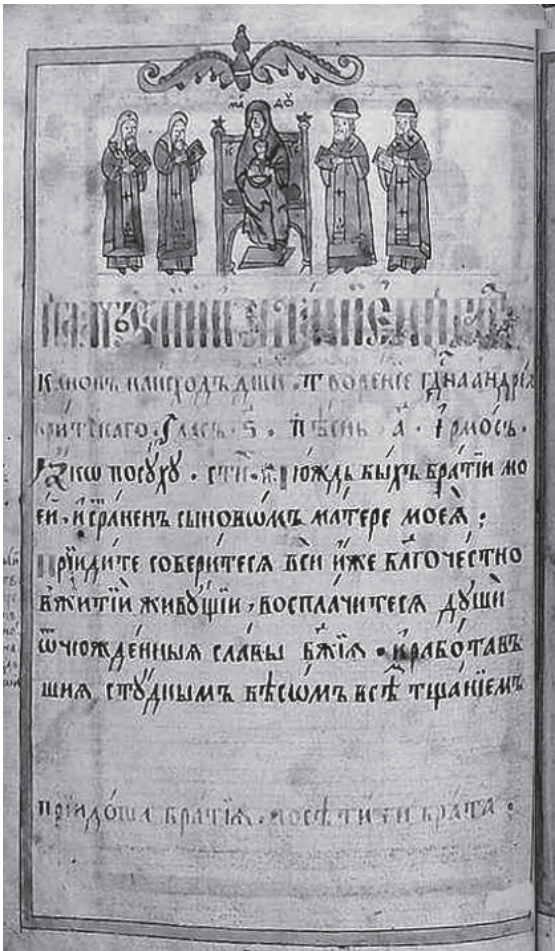 МР҃ ѲУ҃
канонъ на исходъ дш҃и · творенїе гдⷭ҇на андреѧ
критскаго · гласъ · ѕ҃ · пѣснь · а҃ · їрмо́съ ·
посꙋ́хꙋ · сти · чюждь быхъ братїи мо
е́й, и страненъ сыновѡмъ матере моеѧ̀ ;
прїиди́те собери́тесѧ вси̑ и́же бл҃гоче́стно
в житїи̑ живꙋ́щїи, восплачи́тесѧ дꙋши̑
ѿчюжде́нныѧ сла́вы бж҃їѧ · и рабо́тавъ
шиѧ стꙋ́днымъ бѣсѡ́мъ всѣ̑ тща́нїемъ
прїидо́ша бра́тїѧ · посѣти́ти бра́та :